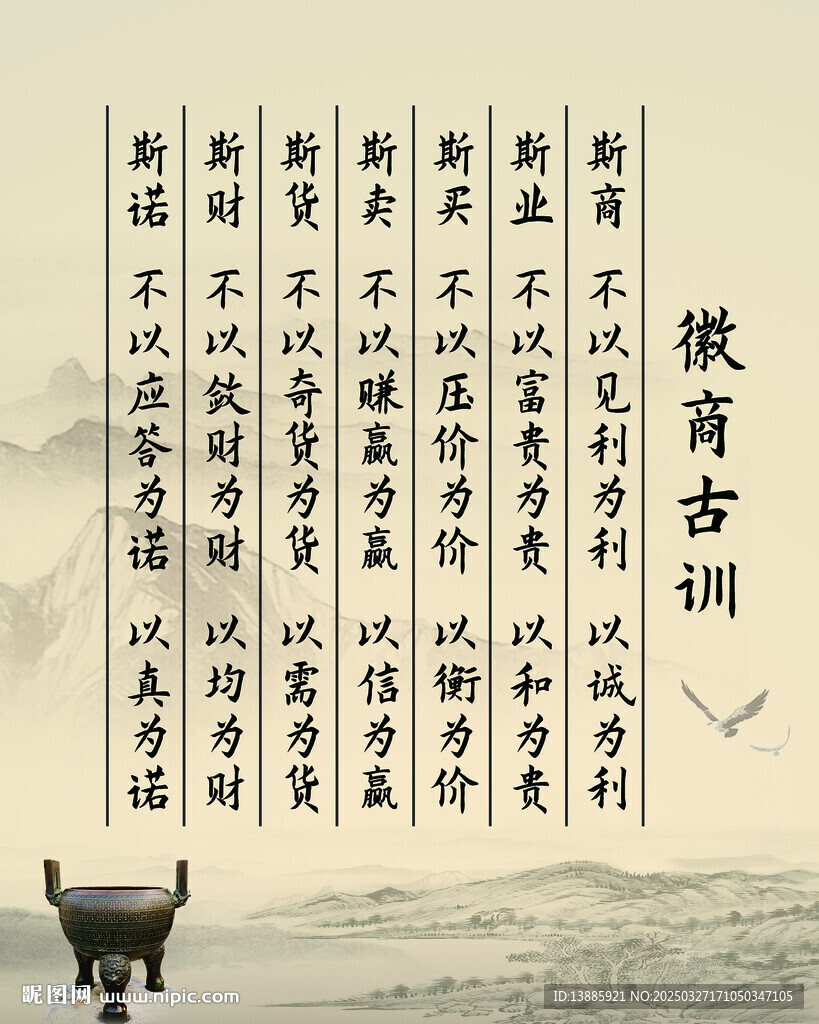 徽商古训
斯商 不以见利为利 以诚为利
斯业 不以富贵为贵 以和为贵
斯买 不以压价为价 以衡为价
斯卖 不以赚赢为赢 以信为赢
斯货 不以奇货为货 以需为货
斯财 不以敛财为财 以均为财
斯诺 不以应答为诺 以真为诺
昵图网 www.nipic.com
ID:13885921 NO:20250327171050347105